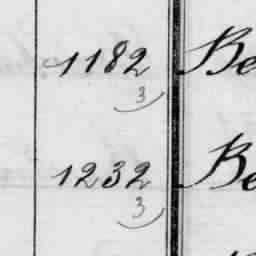 1182 Be
3
1232 Be
3